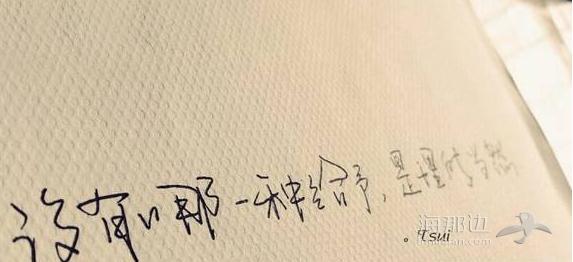 没有哪一种给予,是理所当然
。Tsui
海那边